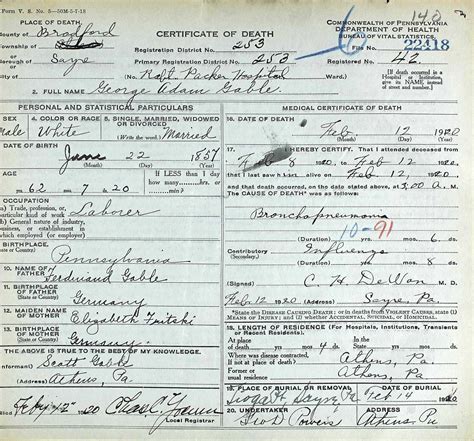 Form V. S. No. 5—50M-5-7-18
140
PLACE OF DEATH
County of Bradford
CERTIFICATE OF DEATH
COMMONWEALTH OF PENNSYLVANIA
DEPARTMENT OF HEALTH
BUREAU OF VITAL STATISTICS
Township of
Registration District No. 253
6
File No. 22418
Sayre
Primary Registration District No. 253
Registered No. 46
Robt Packer Hospital
(If death occurred in a Hospital or Institution, give its NAME instead of
2 FULL NAME George Adam Gable
PERSONAL AND STATISTICAL PARTICULARS
MEDICAL CERTIFICATE OF DEATH
Male
4 COLOR OR RACE White
5 SINGLE, MARRIED, WIDOWED OR DIVORCED (Write the word) Married
16 DATE OF DEATH
Feb 12 1920
(Month) (Day) (Year)
DATE OF BIRTH
June 22 1857
(Month) (Day) (Year)
17 I HEREBY CERTIFY, That I attended deceased from
Feb 8 1920, to Feb 12, 1920,
that I last saw h alive on Feb 12, 1920,
and that death occurred, on the date stated above, at 3:00 A.M.
62 7 20
IF LESS than 1 day
The CAUSE OF DEATH* was as follows:
OCCUPATION
(a) Trade, profession, or particular kind of work Laborer
(b) General nature of industry, business, or establishment in which employed (or employer)
Bronchopneumonia
10-91
(Duration) yrs. mos. 6 ds.
BIRTHPLACE
(State or Country)
Pennsylvania
Contributory Influenza
(Duration) yrs. mos. 8 ds.
10 NAME OF FATHER
Ferdinand Gable
(Signed) C. H. DeWan M.D.
11 BIRTHPLACE OF FATHER
(State or Country)
Germany
Feb 12 1920 (Address) Sayre, Pa.
*State the DISEASE CAUSING DEATH; or in deaths from VIOLENT CAUSES, state (1) MEANS OF INJURY; and (2) whether ACCIDENTAL, SUICIDAL, or HOMICIDAL.
12 MAIDEN NAME OF MOTHER
Elizabeth
13 BIRTHPLACE OF MOTHER
(State or Country)
Germany
18 LENGTH OF RESIDENCE (For Hospitals, Institutions, Transients, or Recent Residents)
yrs. mos. 4 ds.
THE ABOVE IS TRUE TO THE BEST OF MY KNOWLEDGE.
Where was disease contracted, if not at place of death? Athens, Pa.
Scott Gable
Athens, Pa.
Athens, Pa.
Feby 12" 1920
Local Registrar
19 PLACE OF BURIAL OR REMOVAL Tioga Pt Sayre Pa
DATE OF BURIAL Feb 14 1920
20 UNDERTAKER Powers
ADDRESS Athens Pa